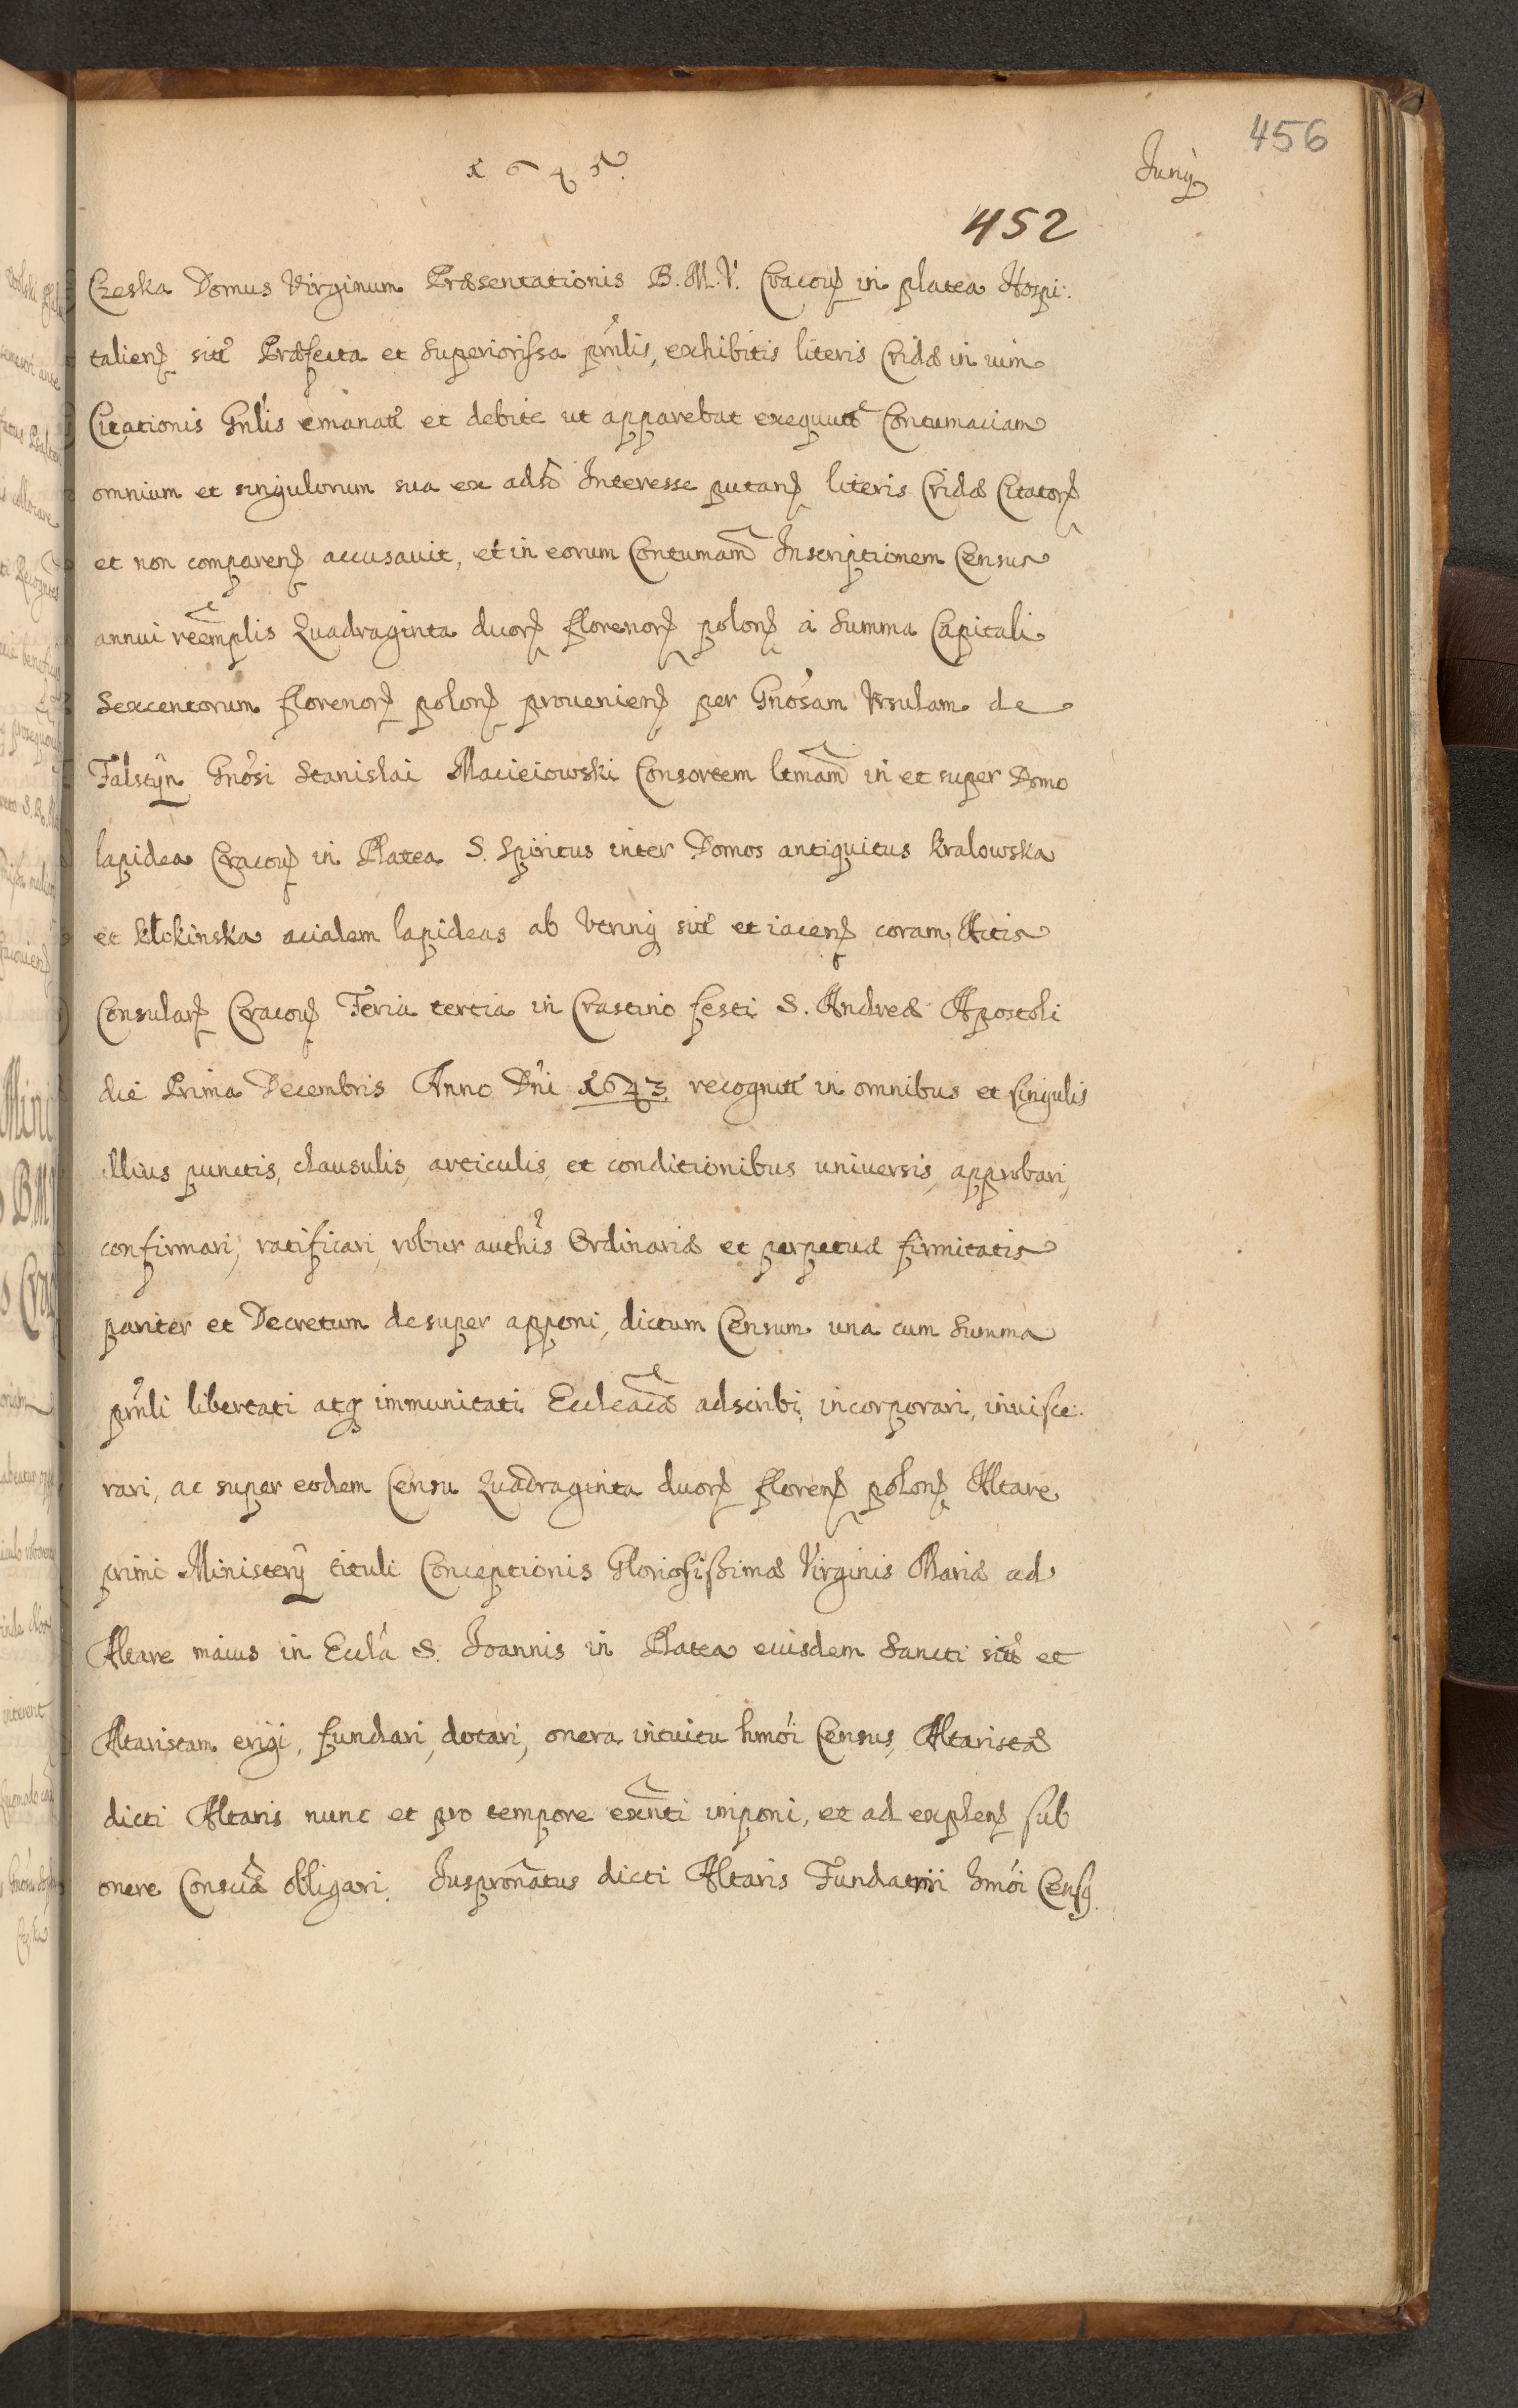 456
1645.
Junÿ
452
Czeska Domus Virginum Præsentationis B. M. V. Cracou in platea Hospi:
talien sitt Præfecta et Superiorissa prnlis, exhibitis literis Cridæ in uim
Citationis Gnlis emanatt et debite ut apparebat exequutt Contumaciam
omnium et singulorum sua ex adso Interesse putan literis Cridæ Citator
et non comparen accusauit, et in eorum Contumam Inscriptionem Census
annui reemplis Quadraginta duor florenor polon à Summa Capitali
Sexcentorum florenor polon prouenien per Gnosam Vrsulam de
Falstÿn Gnosi Stanislai Macieiowski Consortem ltmam in et super Domo
lapidea Cracou in Platea S. Spiritus inter Domos antiquitus Kralowska
et Klokinska acialem lapideas ab vtrinq sitt et iacen coram Actis
Consular Cracou Feria tertia in Crastino festi S. Andreæ Apostoli
die Prima Decembris Anno Dni 1643 recognitt in omnibus et singulis
illius punctis, clausulis, articulis, et conditionibus uniuersis, approbari,
confirmari, ratificari, robur authis Ordinariæ et perpetuæ firmitatis
pariter et Decretum desuper apponi, dictum Censum una cum Summa
prnli libertati atq immunitati Eccleacæ adscribi, incorporari, inuisce:
rari, ac super eodem Censu Quadraginta duor floren polon Altare
primi Ministerÿ tituli Conceptionis Gloriosissimæ Virginis Mariæ ad
Altare maius in Eccla S. Joannis in Platea euisdem Sancti sitt et
Altaristam erigi, fundari, dotari, onera intuitu hmoi Census, Altaristæ
dicti Altaris nunc et pro tempore exnti imponi, et ad explen sub
onere Consciæ obligari. Juspronatus dicti Altaris Fundatrii hmoi Censq